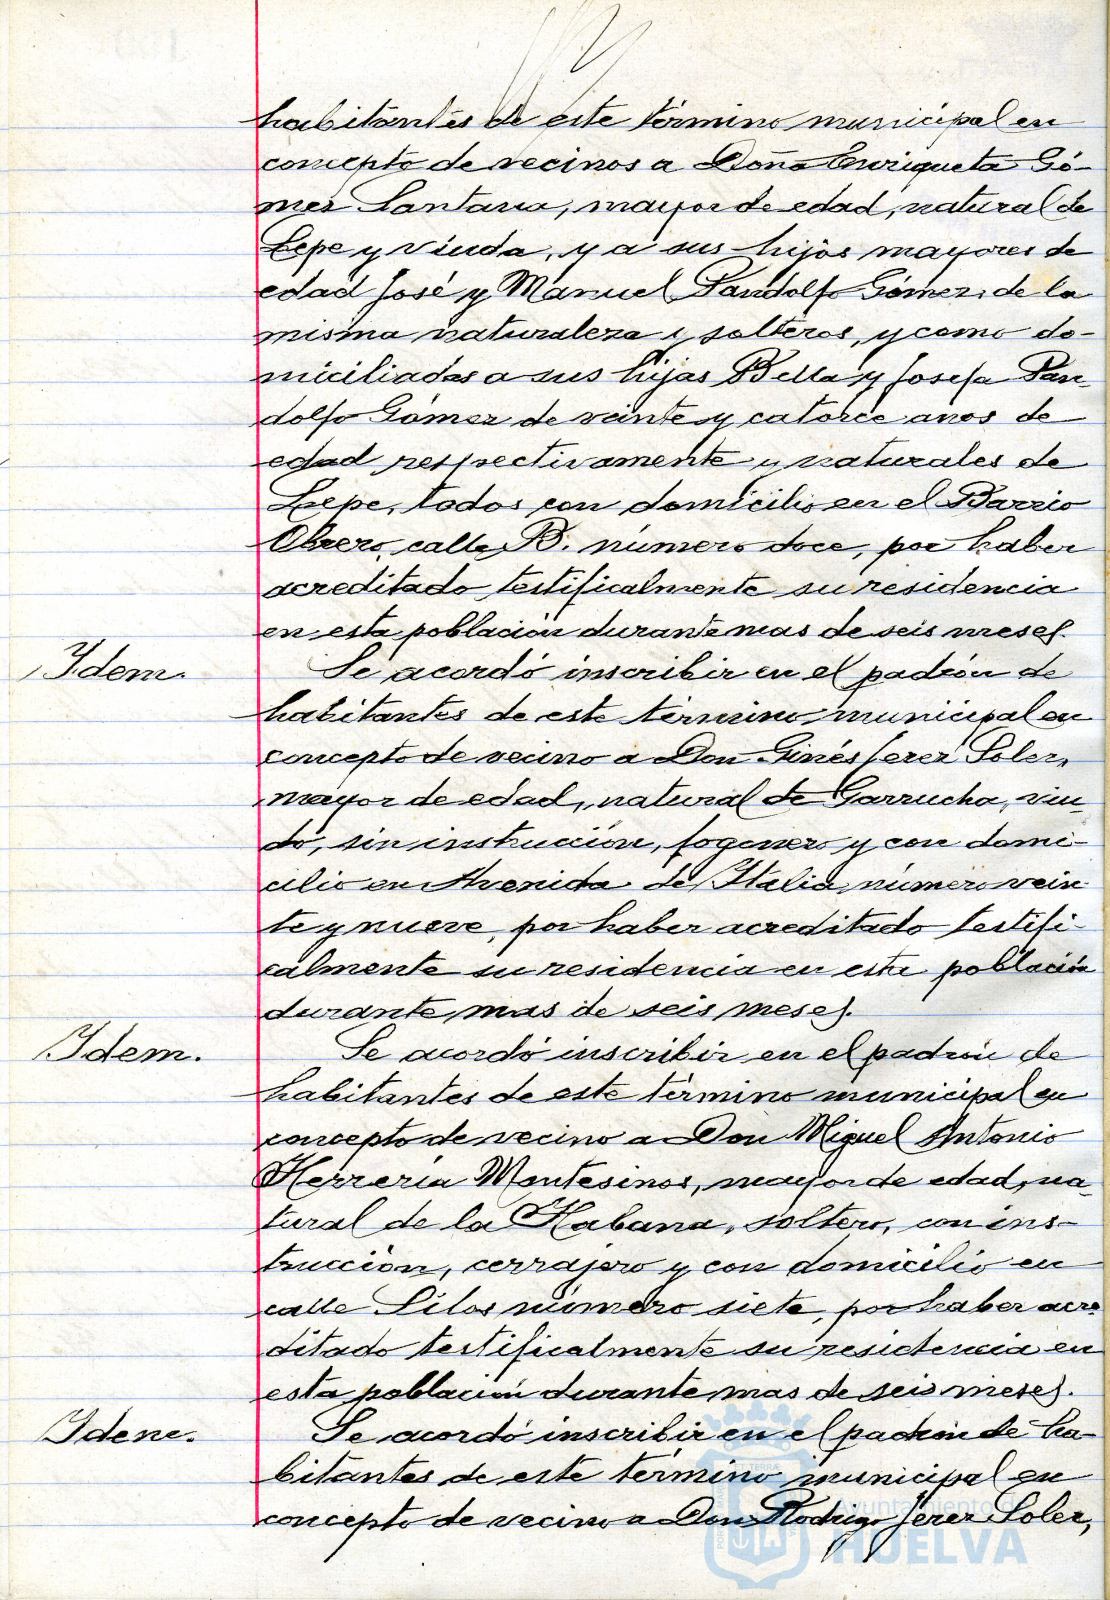 habitantes de este término municipal en
concepto de vecinos a Doña Enriqueta Gó-
mez Santana, mayor de edad, natural de
Lepe y viuda, y a sus hijos mayores de
edad José y Manuel Pandolfo Gómez, de la
misma naturaleza y solteros, y como do-
miciliadas a sus hijas Bella y Josefa Pan-
dolfo Gómez de veinte y catorce años de
edad respectivamente y naturales de
Lepe, todos con domicilio en el Barrio
Obrero, calle B. número doce, por haber
acreditado testificalmente su residencia
en esta población durante mas de seis meses.
Idem.
Se acordó inscribir en el padrón de
habitantes de este término municipal en
concepto de vecino a Don Ginés Jerez Soler,
mayor de edad, natural de Garrucha, viu-
do, sin instrucción, fogonero y con domi-
cilio en Avenida de Italia número vein-
te y nueve, por haber acreditado testifi-
calmente su residencia en esta población
durante mas de seis meses.
Idem.
Se acordó inscribir en el padrón de
habitantes de este término municipal en
concepto de vecino a Don Miguel Antonio
Herreria Montesinos, mayor de edad, na-
tural de la Habana, soltero, con ins-
trucción, cerrajero y con domicilio en
calle Silos número siete, por haber acre-
ditado testificalmente su residencia en
esta población durante mas de seis meses.
Idem.
Se acordó inscribir en el padrón de ha-
bitantes de este término municipal en
concepto de vecino a Don Rodrigo Jerez Soler,
Ayuntamiento de
HUELVA